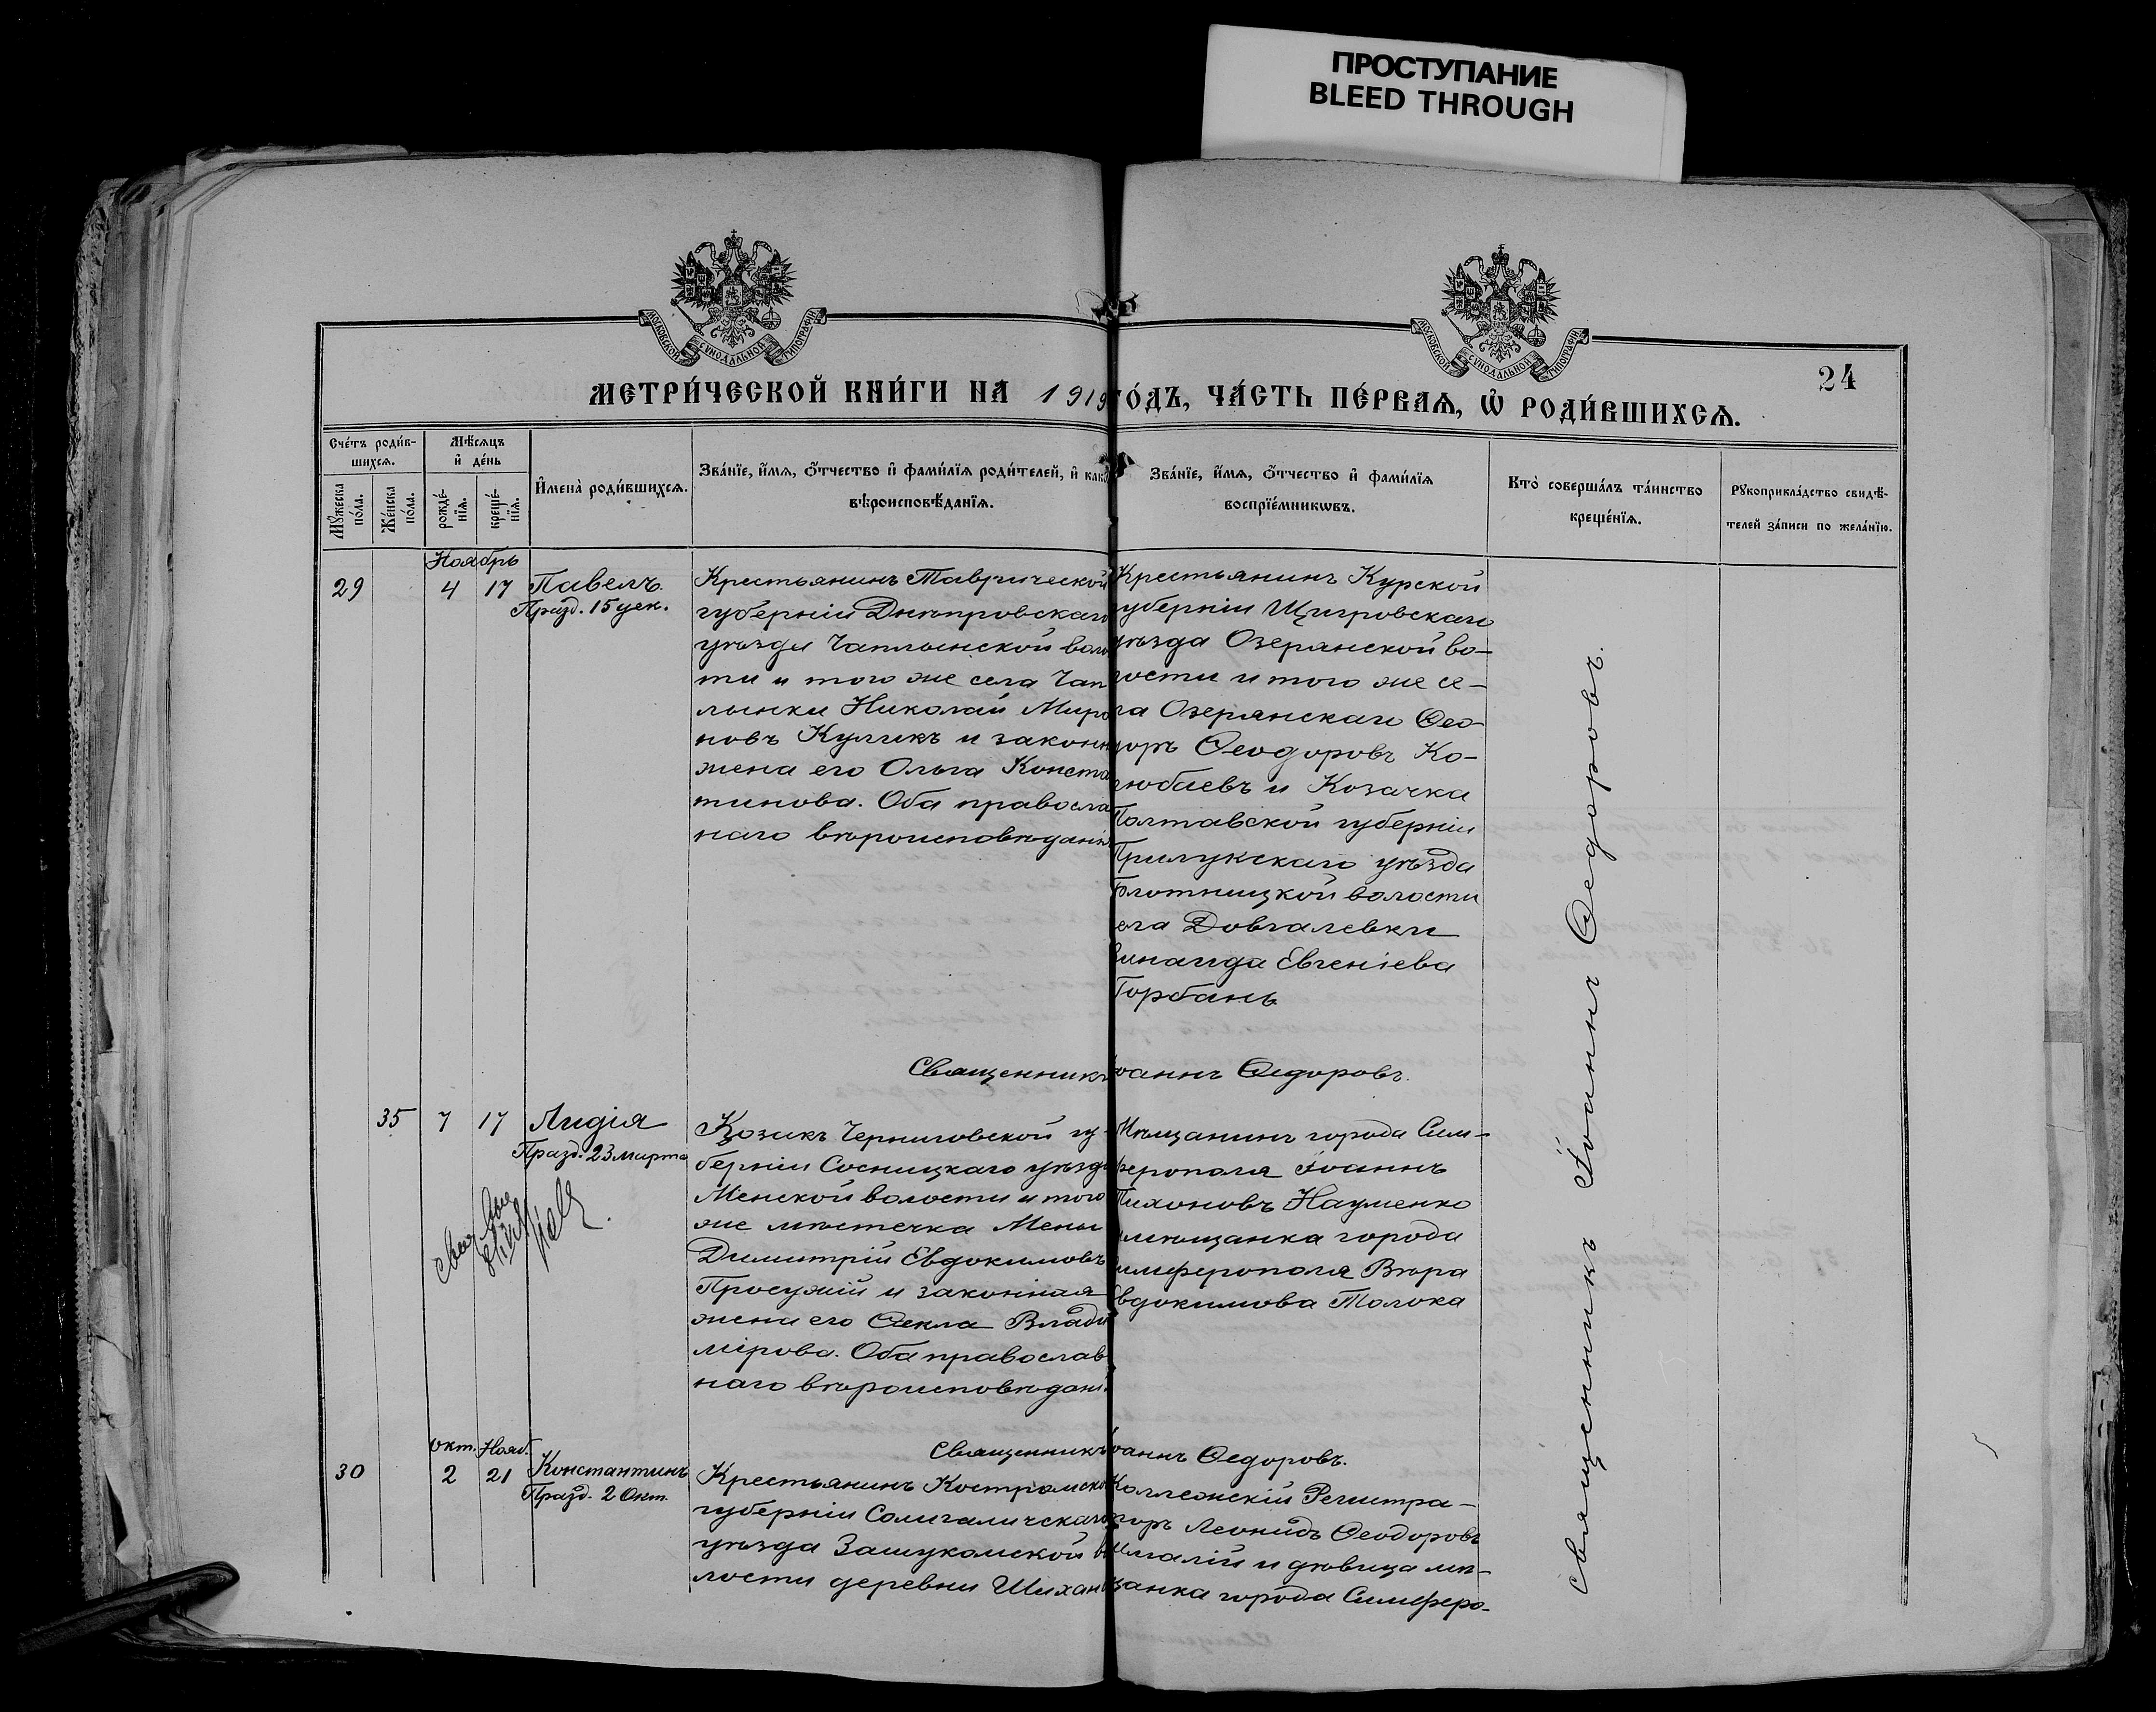 ПРОСТУПАНИЕ
BLEED THROUGH
МОСКОВСКОЙ СѴНОДАЛЬНОЙ ТИПОГРАФІИ
МОСКОВСКОЙ СѴНОДАЛЬНОЙ ТИПОГРАФІИ
24
МЕТРИ́ЧЕСКОЙ КНИ́ГИ НА 1919 ГО́ДЪ, ЧА́СТЬ ПЕ́РВАѦ, Ѡ҆ РОДИ́ВШИХСѦ.
Сче́тъ роди́в-
шихсѧ.
Мꙋ́жеска по́ла.
Же́нска по́ла.
Мѣ́сѧцъ
и҆ де́нь
рожде́-
нїѧ.
креще́-
нїѧ.
И҆мена̀ роди́вшихсѧ.
Зва́нїе, и҆́мѧ, ѻ҆́тчество и҆ фами́лїѧ роди́телей, и҆ како́
вѣроисповѣ́данїѧ.
Зва́нїе, и҆́мѧ, ѻ҆́тчество и҆ фами́лїѧ
воспрїе́мникѡвъ.
Кто̀ соверша́лъ та́инство
креще́нїѧ.
Рꙋкоприкла́дство свидѣ́-
телей за́писи по жела́нїю.
Ноябрь
29 4 17 Павелъ.
Празд. 15 дек.
Крестьянинъ Таврической
губерніи Днѣпровскаго
уѣзда Чаплынской воло
ти и того же села Чап
лынки Николай Миро
новъ Куликъ и законн
жена его Ольга Конста
тинова. Оба правосла
наго вѣроисповѣдані
Крестьянинъ Курской
губерніи Щигровскаго
уѣзда Озерянской во-
лости и того же се-
ла Озерянскаго Ѳео-
доръ Ѳеодоровъ Ко-
любаевъ и Козачка
Полтавской губерніи
Прилукскаго уѣзда
отницкой волости
ела Довгалевки
Зинаида Евгеніева
Горбань
Священникъ Іоаннъ Ѳедоровъ.
35 7 17 Лидія
Празд. 23 марта
Козакъ Черниговской гу-
берніи Сосницкаго уѣзда
Менской волости и того
же мѣстечка Мены
Димитрій Евдокимовъ
и законная
жена его Ѳекла Влади
мірова. Оба православ
наго вѣроисповѣдані
Мѣщанинъ города Сим-
ферополя Іоаннъ
Тихоновъ Науменко
и мѣщанка города
Симферополя Вѣра
Евдокимова Толока
Священникъ Іоаннъ Ѳедоровъ.
Окт. Нояб.
30 2 21 Константинъ
Празд. 2 Окт.
Крестьянинъ Костромско
губерніи Солигаличскаго
уѣзда Зашугомской во
лости деревни Шихан
Коллежскій Регистра-
торъ Леонидъ Ѳеодоровъ
и дѣвица мѣ-
щанка города Симферо-
Священникъ Іоаннъ Ѳедоровъ.